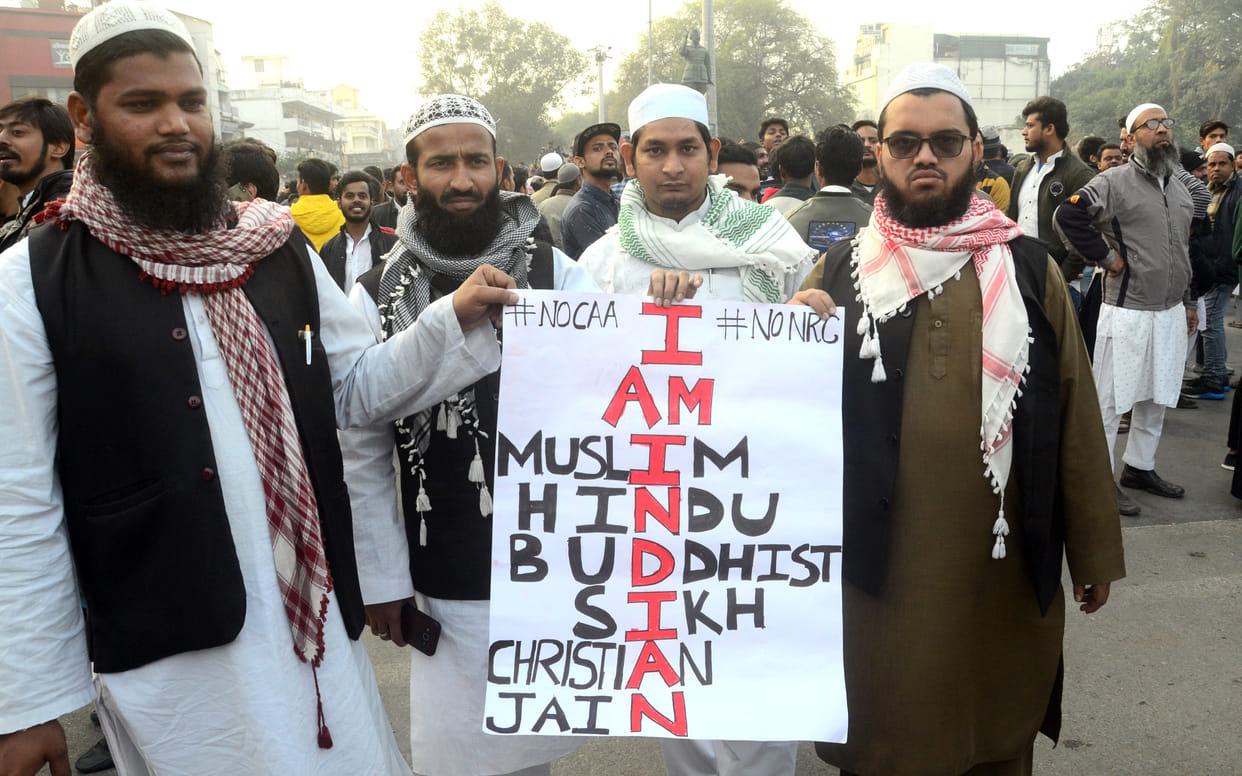 #NOCAA #NO NRC
I
AM
MUSLIM
HINDU
BUDDHIST
SIKH
CHRISTIAN
JAIN